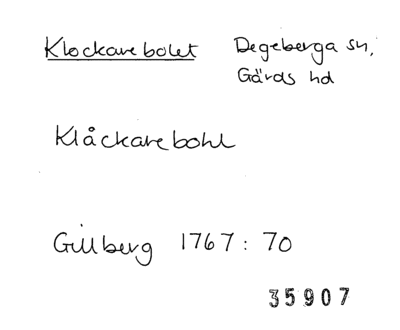 Klockarebolet Degeberga sn,
Gärds hd
Klåckarebohl
Gillberg 1767: 70
35907